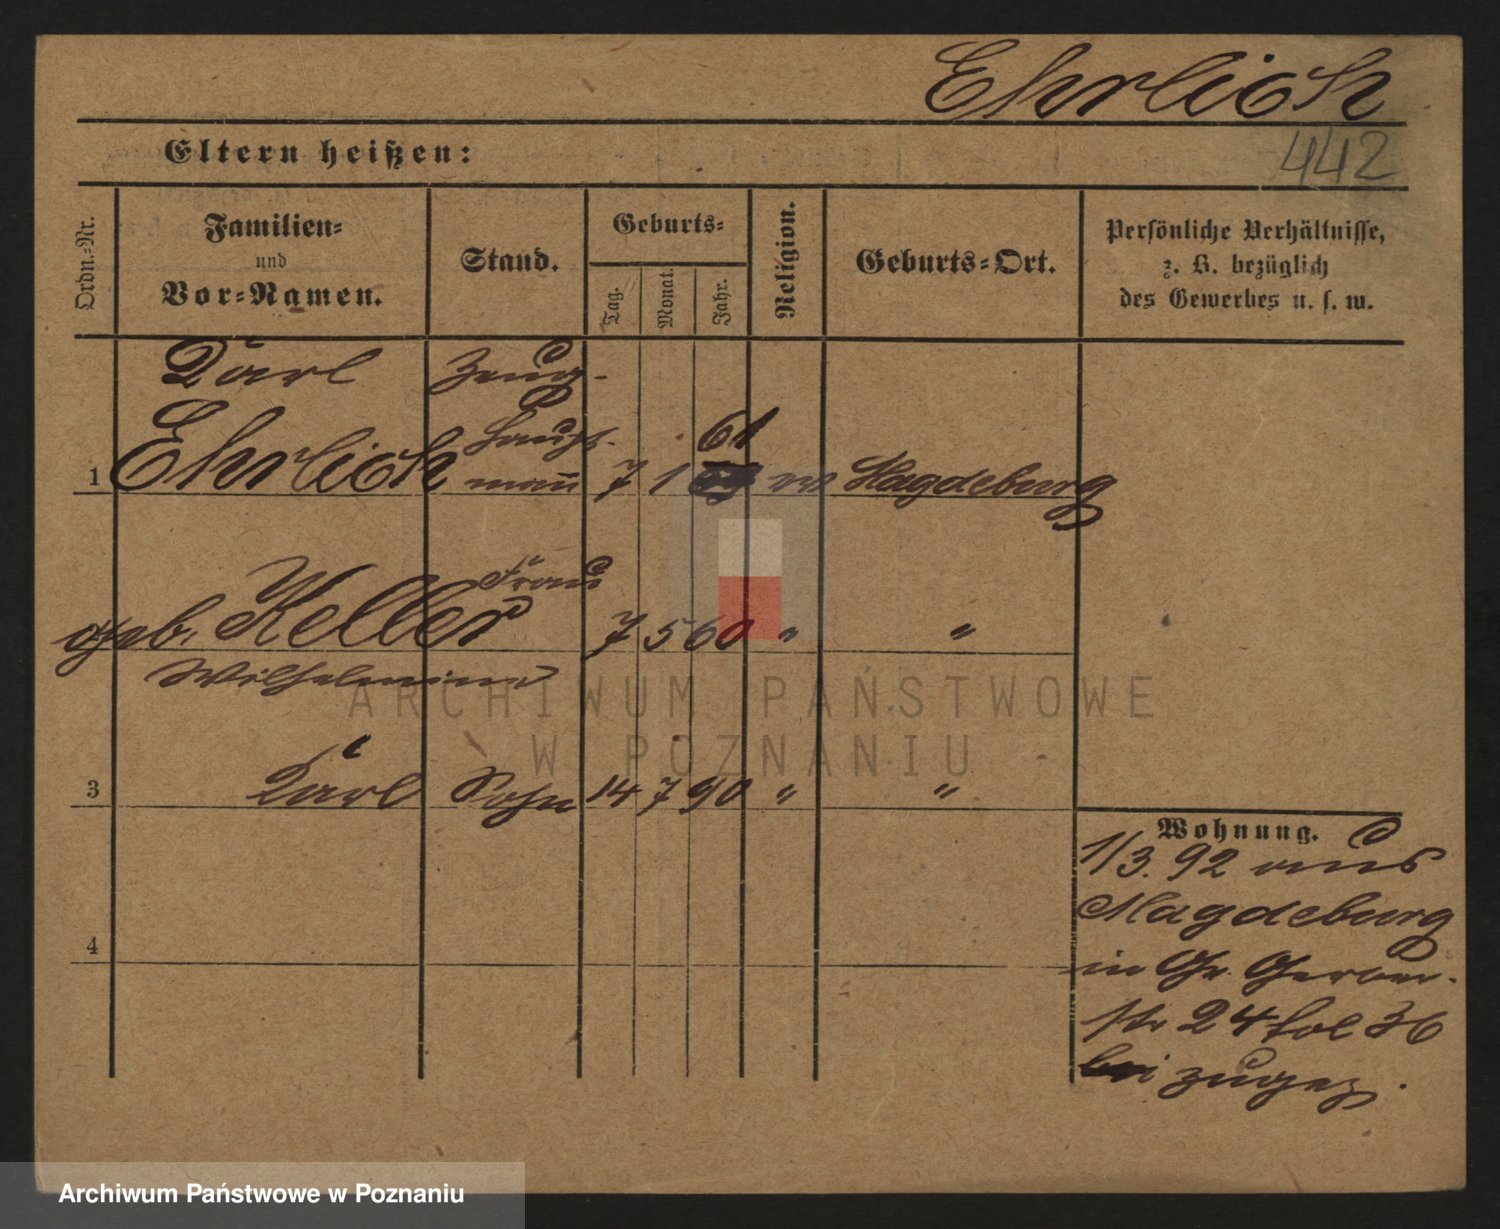 Ehrlich
442
Eltern heißen:
Ordn.-Nr.
Familien-
und
Vor-Namen.
Stand.
Geburts-
Tag.
Monat.
Jahr.
Religion.
Geburts-Ort.
Persönliche Verhältnisse,
z. B. bezüglich
des Gewerbes u. s. w.
Carl Zeug-
Haupt-
61
1 Ehrlich mann 7 1 ev Magdeburg
Frau
geb. Keller 7 5 60 " "
Wilhelmine
3 Carl Sohn 14 7 90 " "
Wohnung.
1/3. 92 aus
Magdeburg
in Gr. Gerber-
str 24 fol 36
zugez.
4
ARCHIWUM PAŃSTWOWE
W POZNANIU
Archiwum Państwowe w Poznaniu